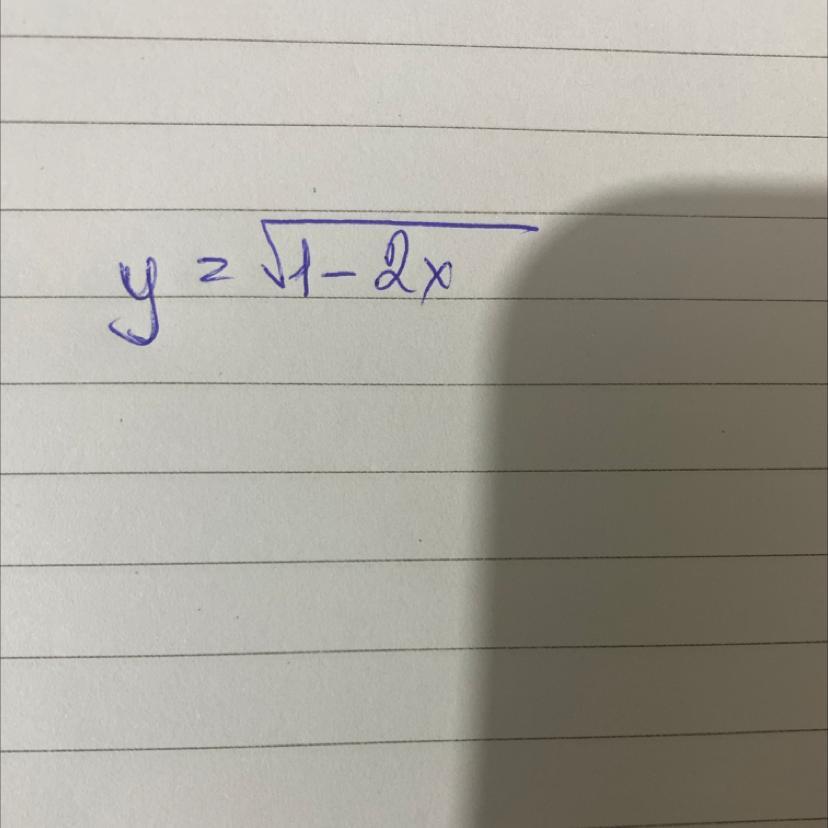 y = √1-2x